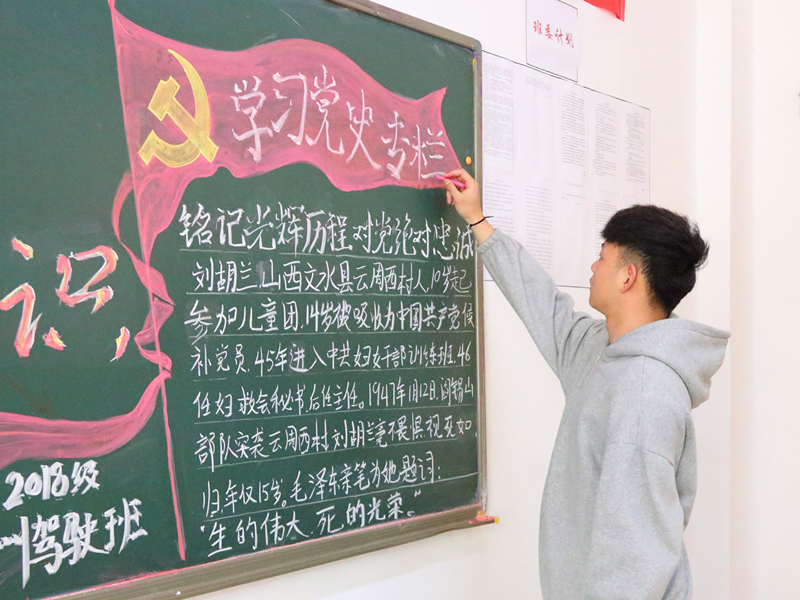 班委计划
学习党史专栏
铭记光辉历程,对党绝对忠诚
刘胡兰,山西文水县云周西村人,10岁起
参加儿童团,14岁被吸收为中国共产党候
补党员.45年进入中共妇女干部训练班,46
任妇救会秘书后任主任。1947年1月12日,阎锡山
部队突袭云周西村,刘胡兰毫不畏惧视死如
归,年仅15岁。毛泽东亲笔为她题词:
“生的伟大,死的光荣。”
识
2018级
驾驶班